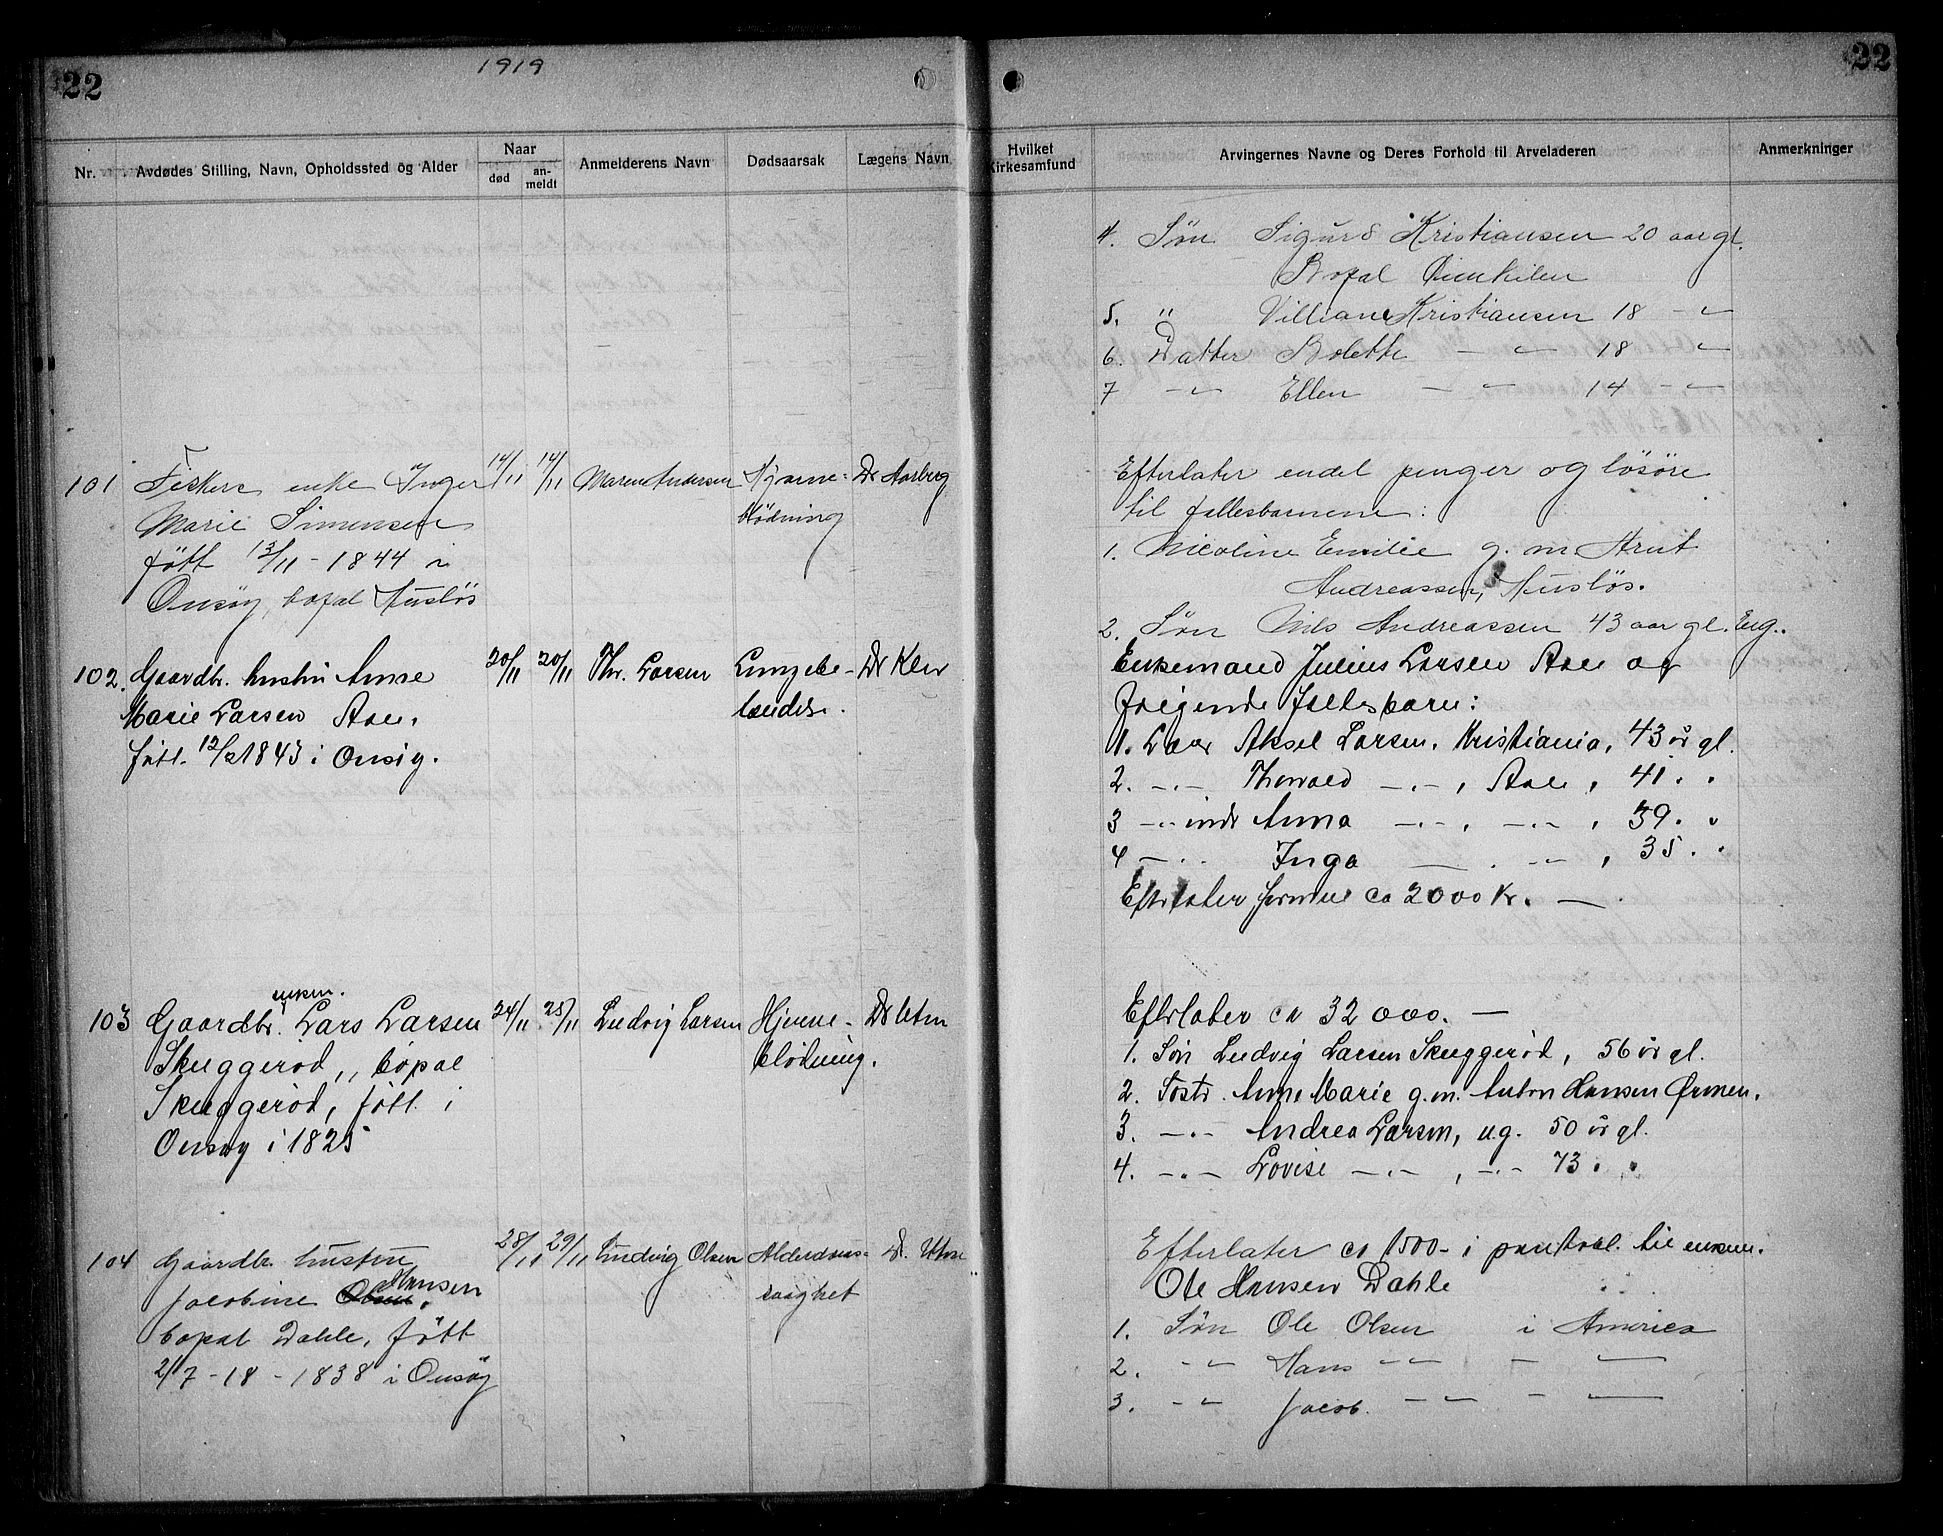 22
1919
22
Nr.
Avdødes Stilling, Navn, Opholdssted og Alder
Naar
død
an-
meldt
Anmelderens Navn
Dødsaarsak
Lægens Navn
Hvilket
Kirkesamfund
Arvingernes Navne og Deres Forhold til Arveladeren
Anmerkninger
4. Søn Sigurd Kristiansen 20 aar gl.
Bopal
5. " Villiam Kristiansen 18 - "
6. Datter Bolette - " - 18 "
7 - " - Ellen - " - 14 - " -
101 Fiskers enke Inger 14/11 14/11 Maren Andersen Hjerne- Dr Aarberg
Marie Simensen blødning
født 13/11 - 1844 i
Onsøy, bopal Husløs
Efterlater endel penger og løsøre
til fællesbarnene:
1. Nicoline Emilie g. m. Arnt
Andreassen, Husløs.
2. Søn Nils Andreassen 43 aar gl. Eng..
102. Gaardbr. hustru Anne 20/11 20/11 Thv. Larsen Lungebe- Dr Klev
Marie Larsen Aale. tændelse.
født. 12/2 1843 i Onsøy.
Enkemand Julius Larsen Aale og
følgende fællesbarn:
1. Søn Aksel Larsen, Kristiania, 43 år gl.
2. -.- Thorvald -.-, Aale, 41. "
3 -.- Anna -.-, -.-, 39. "
4 -.- Inga - . -.-, 35. "
Efterlater formue ca 2000 kr. -
103 Gaardbr. enken. Lars Larsen 24/11 25/11 Ludvig Larsen Hjerne- Dr Utne
Skuggerød,, bopal blødning.
Skuggerød, født. i
Onsøy i 1825
Efterlater ca 32 000. -
1. Søn Ludvig Larsen Skuggerød, 56 år gl.
2. Dost. Anne Marie g.m. Anton Hansen Ørmen.
3. -.- Andrea Larsen, u.g. 50 år gl.
4. -.- Lovise -.-, -.- 73. "
104 Gaardbr. hustru 28/11 29/11 Ludvig Olsen Alderdoms- Dr. Utne
Jacobine Olsen. Hansen svaghet
bopal Dahle, født
2/7 - 18 - 1838 i Onsøy
Efterlater ca 1500 - i til enkem.
Ole Hansen Dahle
1. Søn Ole Olsen i America
2. - " - Hans - " - - -
3. - " - Jacob. - " - - -